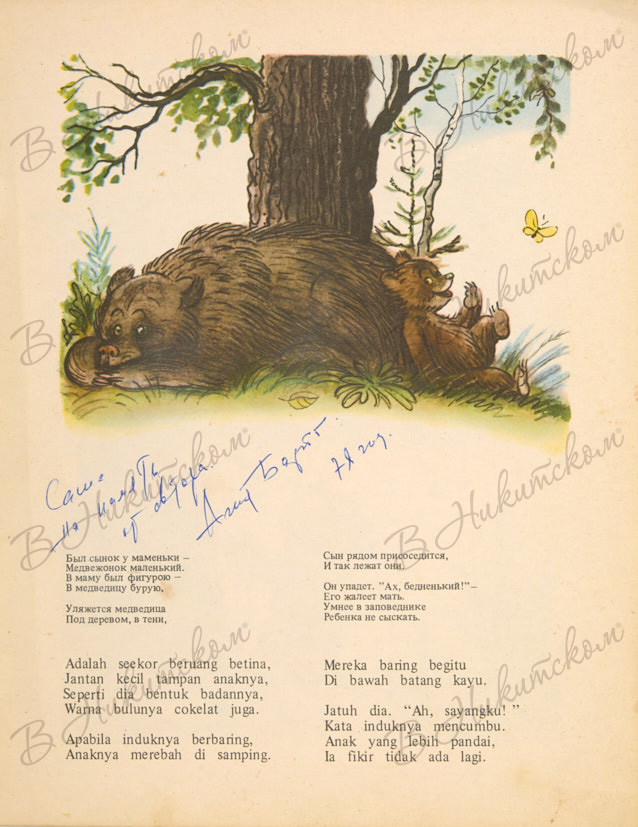 Саше
на память
от автора
Агния Барто
78 год.
Был сынок у маменьки –
Медвежонок маленький.
В маму был фигурою –
В медведицу бурую,
Уляжется медведица
Под деревом, в тени,
Сын рядом присоседится,
И так лежат они.
Он упадет. "Ах, бедненький!"–
Его жалеет мать.
Умнее в заповеднике
Ребенка не сыскать.
Adalah seekor beruang betina,
Jantan kecil tampan anaknya,
Seperti dia bentuk badannya,
Warna bulunya cokelat juga.
Apabila induknya berbaring,
Anaknya merebah di samping.
Mereka baring begitu
Di bawah batang kayu.
Jatuh dia. “Ah, sayangku! ”
Kata induknya mencumbu.
Anak yang lebih pandai,
Ia fikir tidak ada lagi.
В Никитском®